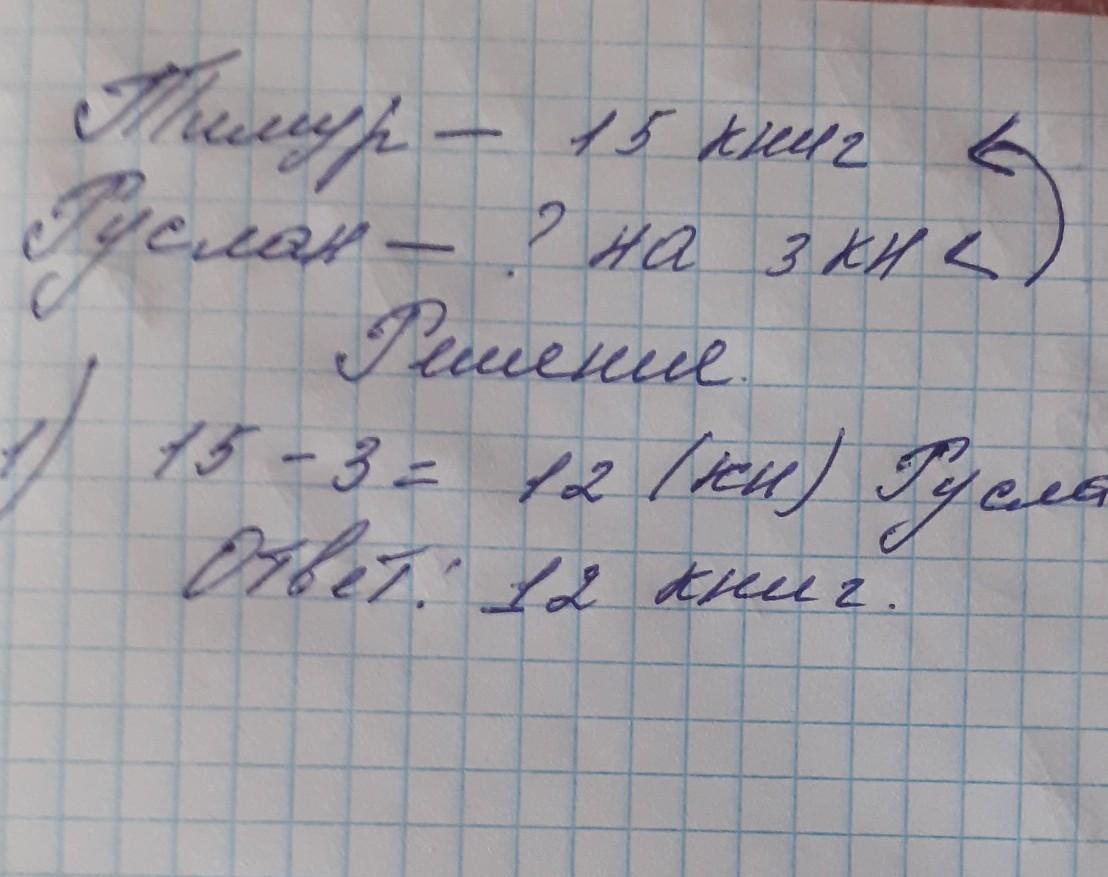 Тимур — 15 книг
Руслан — ? на 3 кн <
Решение.
1) 15 - 3 = 12 (кн) Русла
Ответ: 12 книг.